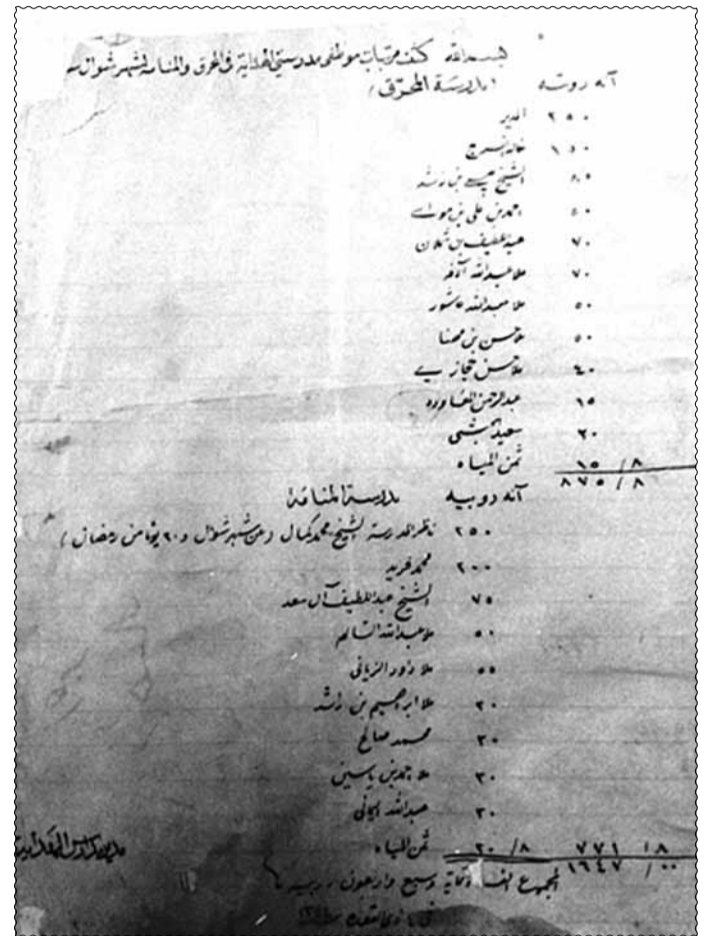 بسم الله كشف مرتبات موظفي مدرستي الهداية في المحرق والمنامة لشهر شوال سنة
آنه روبيه (مدرسة المحرق)
٢٥٠ المدير
١٥٠ خالد الفرج
الشيخ بن راشد
٥٠ احمد بن علي بن
٧٠ عبد اللطيف بن
٧٠ ملا عبدالله
٥٠ ملا عبدالله عاشور
٥٠ ملا حسن بن مهنا
٤٠ ملا حسن حجازي
١٥ عبدالرحمن المعاوده
٢٠ سعيد
٨ / ١٥ ثمن المياه
٨ / ٨٧٥
آنه روبيه مدرسة المنامة
٢٥٠ ناظر المدرسة الشيخ محمد كمال (عن شهر شوال و٢٠ يوما من رمضان)
٢٠٠ محمد فريد
٧٥ الشيخ عبداللطيف آل سعد
٥٠ ملا عبدالله السالم
٥٥ ملا داود الزياني
٣٠ ملا ابراهيم بن راشد
٣٠ محمد صالح
٣٠ ملا احمد بن ياسين
٣٠ عبدالله
٨/ ٢٠ ثمن المياه
٨/ ٧٧١
٠٠/ ١٦٤٧
المجموع الف وستماية وسبع واربعون روبيه